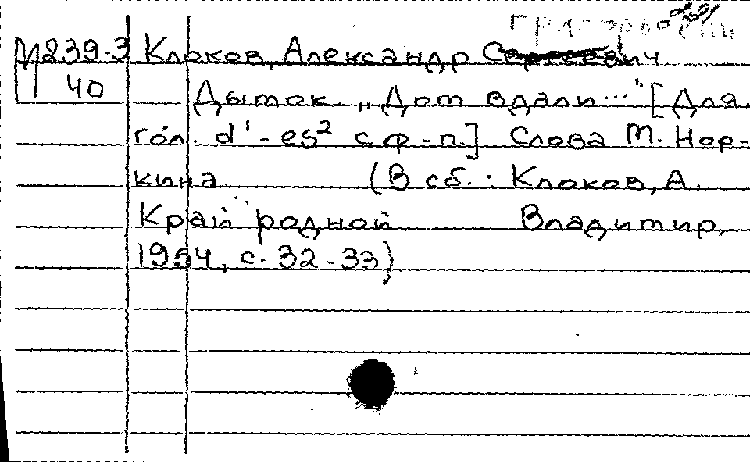 Григорьевич
М 239-3 Клоков, Александр Сергеевич
40 Дымок. „Дом вдали..." [Для
гол. d¹-es² с ф-п.] Слова М. Нор-
кина (В сб.: Клоков, А.
Край родной Владимир,
1954, с. 32-33)